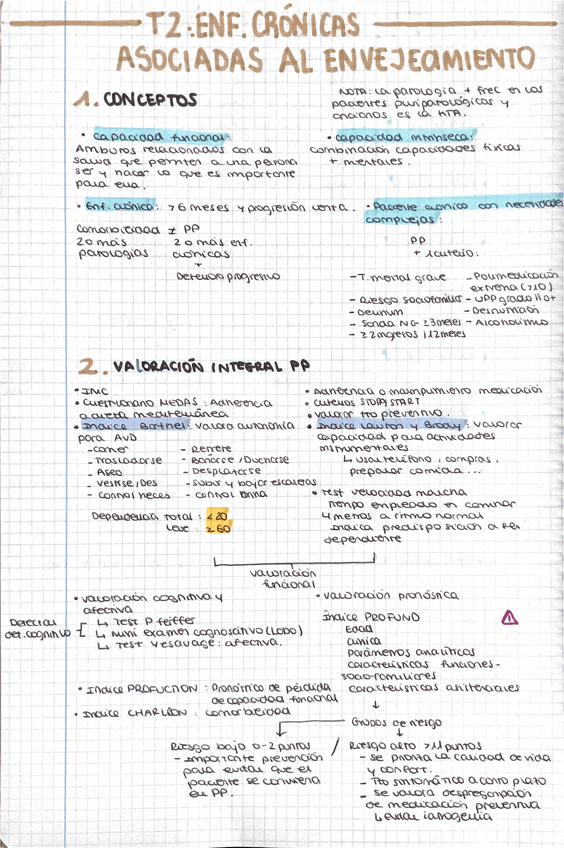 T2. ENF. CRÓNICAS
ASOCIADAS AL ENVEJECIMIENTO
1. CONCEPTOS
NOTA: La patología + frec en los
pacientes pluripatológicos y
ancianos es la HTA.
• Capacidad funcional:
Atributos relacionados con la
salud que permiten a una persona
ser y hacer lo que es importante
para ella.
• Capacidad intrínseca:
combinación capacidades físicas
+ mentales.
• Enf. crónica: > 6 meses y progresión lenta.
Comorbilidad ≠ PP
2 o más
patologías
2 o más enf.
crónicas
+
Deterioro progresivo
• Paciente crónico con necesidades
complejas:
PP
+ 1 criterio:
- T. mental grave
- Riesgo sociofamiliar
- Delirium
- Sonda NG ≥ 3 meses
- ≥ 2 ingresos / 12 meses
- Polimedicación
extrema (>10)
- UPP grado II o +
- Desnutrición
- Alcoholismo
2. VALORACIÓN INTEGRAL PP
• IMC
• Cuestionario MEDAS: Adherencia
a dieta mediterránea
• Índice Barthel: valora autonomía
para AVD
- Comer
- Trasladarse
- Aseo
- Vestirse/Des
- Control heces
- Retrete
- Bañarse/Ducharse
- Desplazarse
- Subir y bajar escaleras
- Control orina
Dependencia Total: <20
Leve: ≥60
• Adherencia o incumplimiento medicación
• Criterios STOPP/START
• Valorar tto preventivo.
• Índice Lawton y Brody: valorar
capacidad para actividades
instrumentales
↳ Usar teléfono, compras,
preparar comida...
• Test velocidad marcha
tiempo empleado en caminar
4 metros a ritmo normal
Indica predisposición a ser
dependiente
valoración
funcional
• Valoración cognitiva y
afectiva
Detectar
det. cognitivo
↳ Test Pfeiffer
↳ Mini examen cognoscitivo (LOBO)
↳ Test Yesavage: afectiva.
• Índice PROFUNCTION: Pronóstico de pérdida
de capacidad funcional
• Índice CHARLSON: comorbilidad
• Valoración pronóstica
Índice PROFUND
Edad
Clínica
Parámetros analíticos
Características funciones-
socio-familiares
Características asistenciales
↓
Grupos de riesgo
Riesgo bajo 0-2 puntos
- Importante prevención
para evitar que el
paciente se convierta
en PP.
/
Riesgo alto >11 puntos
- Se prioriza la calidad de vida
y confort.
- Tto sintomático a corto plazo
- Se valora desprescripción
de medicación preventiva
↳ evitar iatrogenia